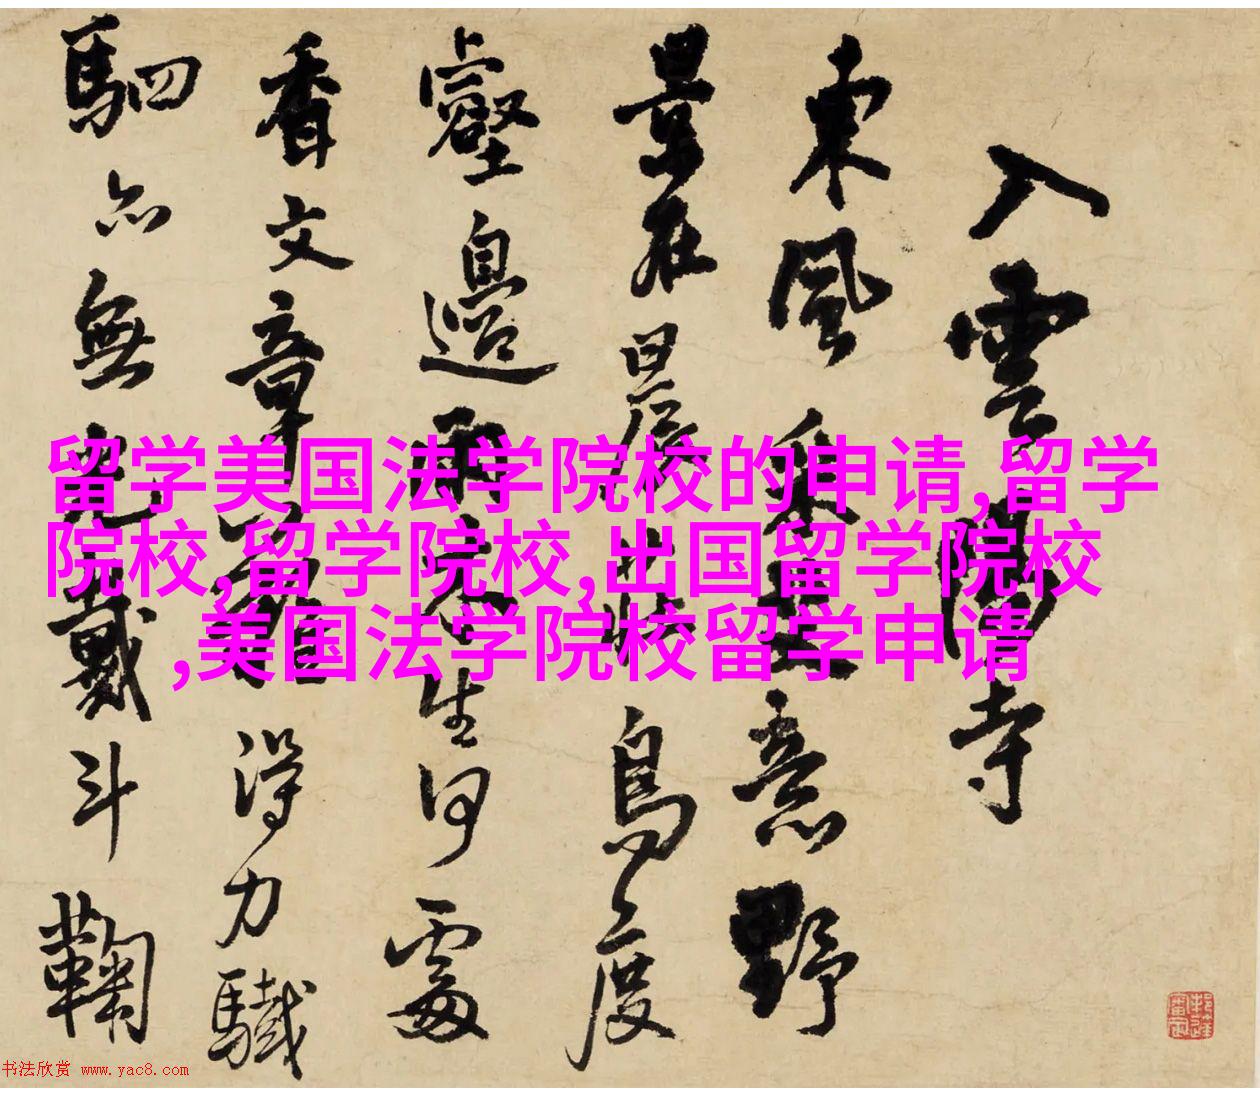 留学美国法学院校的申请,留学
院校,留学院校,出国留学院校
,美国法学院校留学申请
入雲寺
東風乘意野
景在晨鳥度
壑邊雨生何處
香文章得力驖
駟亦無戴斗鞠
书法欣赏 www.yac8.com